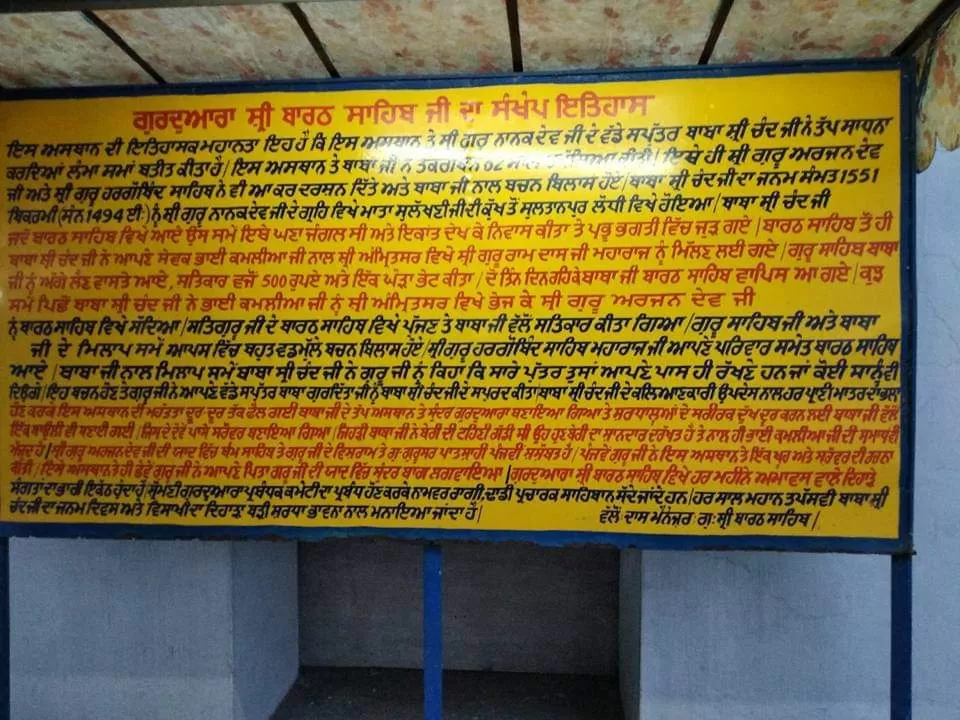 ਗੁਰਦੁਆਰਾ ਸ੍ਰੀ ਬਾਰਠ ਸਾਹਿਬ ਜੀ ਦਾ ਸੰਖੇਪ ਇਤਿਹਾਸ
ਇਸ ਅਸਥਾਨ ਦੀ ਇਤਿਹਾਸਕ ਮਹਾਨਤਾ ਇਹ ਹੈ ਕਿ ਇਸ ਅਸਥਾਨ ਤੇ ਸ੍ਰੀ ਗੁਰੂ ਨਾਨਕ ਦੇਵ ਜੀ ਦੇ ਵੱਡੇ ਸਪੁੱਤਰ ਬਾਬਾ ਸ੍ਰੀ ਚੰਦ ਜੀ ਨੇ ਤੱਪ ਸਾਧਨਾ
ਕਰਦਿਆਂ ਲੰਮਾ ਸਮਾਂ ਬਤੀਤ ਕੀਤਾ ਹੈ / ਇਸ ਅਸਥਾਨ ਤੇ ਬਾਬਾ ਜੀ ਨੇ ਤਕਰੀਬਨ 62 ਸਾਲ ਕੀਤੀ / ਇਥੇ ਹੀ ਸ੍ਰੀ ਗੁਰੂ ਅਰਜਨ ਦੇਵ
ਜੀ ਅਤੇ ਸ੍ਰੀ ਗੁਰੂ ਹਰਗੋਬਿੰਦ ਸਾਹਿਬ ਨੇ ਵੀ ਆ ਕਰ ਦਰਸ਼ਨ ਦਿੱਤੇ ਅਤੇ ਬਾਬਾ ਜੀ ਨਾਲ ਬਚਨ ਬਿਲਾਸ ਹੋਏ / ਬਾਬਾ ਸ੍ਰੀ ਚੰਦ ਜੀ ਦਾ ਜਨਮ ਸੰਮਤ 1551
ਬਿਕਰਮੀ (ਸੰਨ 1494 ਈ:) ਨੂੰ ਸ੍ਰੀ ਗੁਰੂ ਨਾਨਕ ਦੇਵ ਜੀ ਦੇ ਗ੍ਰਹਿ ਵਿਖੇ ਮਾਤਾ ਸੁਲੱਖਣੀ ਜੀ ਦੀ ਕੁੱਖ ਤੋਂ ਸੁਲਤਾਨਪੁਰ ਲੋਧੀ ਵਿਖੇ ਹੋਇਆ / ਬਾਬਾ ਸ੍ਰੀ ਚੰਦ ਜੀ
ਜਦੋਂ ਬਾਰਠ ਸਾਹਿਬ ਵਿਖੇ ਆਏ ਉਸ ਸਮੇਂ ਇਥੇ ਘਣਾ ਜੰਗਲ ਸੀ ਅਤੇ ਇਕਾਂਤ ਦੇਖ ਕੇ ਨਿਵਾਸ ਕੀਤਾ ਤੇ ਪ੍ਰਭੂ ਭਗਤੀ ਵਿੱਚ ਜੁੜ ਗਏ / ਬਾਰਠ ਸਾਹਿਬ ਤੋਂ ਹੀ
ਬਾਬਾ ਸ੍ਰੀ ਚੰਦ ਜੀ ਨੇ ਆਪਣੇ ਸੇਵਕ ਭਾਈ ਕਮਲੀਆ ਜੀ ਨਾਲ ਸ੍ਰੀ ਅੰਮ੍ਰਿਤਸਰ ਵਿਖੇ ਸ੍ਰੀ ਗੁਰੂ ਰਾਮ ਦਾਸ ਜੀ ਮਹਾਰਾਜ ਨੂੰ ਮਿਲਣ ਲਈ ਗਏ / ਗੁਰੂ ਸਾਹਿਬ ਬਾਬਾ
ਜੀ ਨੂੰ ਅੱਗੇ ਲੈਣ ਵਾਸਤੇ ਆਏ, ਸਤਿਕਾਰ ਵਜੋਂ 500 ਰੁਪਏ ਅਤੇ ਇੱਕ ਘੋੜਾ ਭੇਟ ਕੀਤਾ / ਦੋ ਤਿੰਨ ਦਿਨ ਰਹਿਕੇ ਬਾਬਾ ਜੀ ਬਾਰਠ ਸਾਹਿਬ ਵਾਪਿਸ ਆ ਗਏ / ਕੁਝ
ਸਮੇਂ ਪਿਛੋਂ ਬਾਬਾ ਸ੍ਰੀ ਚੰਦ ਜੀ ਨੇ ਭਾਈ ਕਮਲੀਆ ਜੀ ਨੂੰ ਸ੍ਰੀ ਅੰਮ੍ਰਿਤਸਰ ਵਿਖੇ ਭੇਜ ਕੇ ਸ੍ਰੀ ਗੁਰੂ ਅਰਜਨ ਦੇਵ ਜੀ
ਨੂੰ ਬਾਰਠ ਸਾਹਿਬ ਵਿਖੇ ਸੱਦਿਆ / ਸਤਿਗੁਰੂ ਜੀ ਦੇ ਬਾਰਠ ਸਾਹਿਬ ਵਿਖੇ ਪੁੱਜਣ ਤੇ ਬਾਬਾ ਜੀ ਵੱਲੋਂ ਸਤਿਕਾਰ ਕੀਤਾ ਗਿਆ / ਗੁਰੂ ਸਾਹਿਬ ਜੀ ਅਤੇ ਬਾਬਾ
ਜੀ ਦੇ ਮਿਲਾਪ ਸਮੇਂ ਆਪਸ ਵਿੱਚ ਬਹੁਤ ਵਡਮੁੱਲੇ ਬਚਨ ਬਿਲਾਸ ਹੋਏ / ਸ੍ਰੀ ਗੁਰੂ ਹਰਗੋਬਿੰਦ ਸਾਹਿਬ ਮਹਾਰਾਜ ਜੀ ਆਪਣੇ ਪਰਿਵਾਰ ਸਮੇਤ ਬਾਰਠ ਸਾਹਿਬ
ਆਏ / ਬਾਬਾ ਜੀ ਨਾਲ ਮਿਲਾਪ ਸਮੇਂ ਬਾਬਾ ਸ੍ਰੀ ਚੰਦ ਜੀ ਨੇ ਗੁਰੂ ਜੀ ਨੂੰ ਕਿਹਾ ਕਿ ਸਾਰੇ ਪੁੱਤਰ ਤੁਸਾਂ ਆਪਣੇ ਪਾਸ ਹੀ ਰੱਖਣੇ ਹਨ ਜਾਂ ਕੋਈ ਸਾਨੂੰ ਵੀ
ਦਿਉਗੇ / ਇਹ ਬਚਨ ਹੋਣ ਤੇ ਗੁਰੂ ਜੀ ਨੇ ਆਪਣੇ ਵੱਡੇ ਸਪੁੱਤਰ ਬਾਬਾ ਗੁਰਦਿੱਤਾ ਜੀ ਨੂੰ ਬਾਬਾ ਸ੍ਰੀ ਚੰਦ ਜੀ ਦੇ ਸਪੁਰਦ ਕੀਤਾ / ਬਾਬਾ ਸ੍ਰੀ ਚੰਦ ਜੀ ਦੇ ਕਲਿਆਣਕਾਰੀ ਉਪਦੇਸ਼ ਨਾਲ ਹਰ ਪ੍ਰਾਣੀ ਮਾਤਰ ਦਾ ਭਲਾ
ਹੋਣ ਕਰਕੇ ਇਸ ਅਸਥਾਨ ਦੀ ਮਹੱਤਤਾ ਦੂਰ-ਦੂਰ ਤੱਕ ਫੈਲ ਗਈ ਬਾਬਾ ਜੀ ਦੇ ਤੱਪ ਅਸਥਾਨ ਤੇ ਸੁੰਦਰ ਗੁਰਦੁਆਰਾ ਬਣਾਇਆ ਗਿਆ ਅਤੇ ਸ਼ਰਧਾਲੂਆਂ ਦੇ ਸਰੀਰਕ ਦੁੱਖ ਦੂਰ ਕਰਨ ਲਈ ਬਾਬਾ ਜੀ ਵੱਲੋਂ
ਇੱਕ ਬਾਉਲੀ ਵੀ ਬਣਾਈ ਗਈ / ਜਿਸ ਦੇ ਦੋਵੇਂ ਪਾਸੇ ਸਰੋਵਰ ਬਣਾਇਆ ਗਿਆ / ਜਿਹੜੀ ਬਾਬਾ ਜੀ ਨੇ ਬੇਰੀ ਦੀ ਟਹਿਣੀ ਗੱਡੀ ਸੀ ਉਹ ਹੁਣ ਬੇਰੀ ਦਾ ਸ਼ਾਨਦਾਰ ਦਰੱਖਤ ਹੈ ਤੇ ਨਾਲ ਹੀ ਭਾਈ ਕਮਲੀਆ ਜੀ ਦੀ ਸਮਾਧ ਵੀ
ਮੌਜੂਦ ਹੈ / ਸ੍ਰੀ ਗੁਰੂ ਅਰਜਨ ਦੇਵ ਜੀ ਦੀ ਯਾਦ ਵਿੱਚ ਥੰਮ ਸਾਹਿਬ ਤੇ ਗੁਰੂ ਜੀ ਦੇ ਵਿਸ਼ਰਾਮ ਤੇ ਗੁ: ਗੁਰੂਸਰ ਪਾਤਸ਼ਾਹੀ ਪੰਜਵੀਂ ਸੁਸ਼ੋਭਤ ਹੈ / ਪੰਜਵੇਂ ਗੁਰੂ ਜੀ ਨੇ ਇਸ ਅਸਥਾਨ ਤੇ ਇੱਕ ਖੂਹ ਅਤੇ ਸਰੋਵਰ ਦੀ ਰਚਨਾ
ਕੀਤੀ / ਇਸੇ ਅਸਥਾਨ ਤੇ ਹੀ ਛੇਵੇਂ ਗੁਰੂ ਜੀ ਨੇ ਆਪਣੇ ਪਿਤਾ ਗੁਰੂ ਜੀ ਦੀ ਯਾਦ ਵਿੱਚ ਸੁੰਦਰ ਬਾਗ ਲਗਵਾਇਆ / ਗੁਰਦੁਆਰਾ ਸ੍ਰੀ ਬਾਰਠ ਸਾਹਿਬ ਵਿਖੇ ਹਰ ਮਹੀਨੇ ਅਮਾਵਸ ਵਾਲੇ ਦਿਹਾੜੇ
ਸੰਗਤਾਂ ਦਾ ਭਾਰੀ ਇਕੱਠ ਹੁੰਦਾ ਹੈ / ਸ਼੍ਰੋਮਣੀ ਗੁਰਦੁਆਰਾ ਪ੍ਰਬੰਧਕ ਕਮੇਟੀ ਦਾ ਪ੍ਰਬੰਧ ਹੋਣ ਕਰਕੇ ਨਾਮਵਰ ਰਾਗੀ, ਢਾਡੀ ਪ੍ਰਚਾਰਕ ਸਾਹਿਬਾਨ ਸੱਦੇ ਜਾਂਦੇ ਹਨ / ਹਰ ਸਾਲ ਮਹਾਨ ਤਪੱਸਵੀ ਬਾਬਾ ਸ੍ਰੀ
ਚੰਦ ਜੀ ਦਾ ਜਨਮ ਦਿਵਸ ਅਤੇ ਵਿਸਾਖੀ ਦਾ ਦਿਹਾੜਾ ਬੜੀ ਸ਼ਰਧਾ ਭਾਵਨਾ ਨਾਲ ਮਨਾਇਆ ਜਾਂਦਾ ਹੈ / ਵੱਲੋਂ ਦਾਸ ਮੈਨੇਜਰ ਗੁ: ਸ੍ਰੀ ਬਾਰਠ ਸਾਹਿਬ /